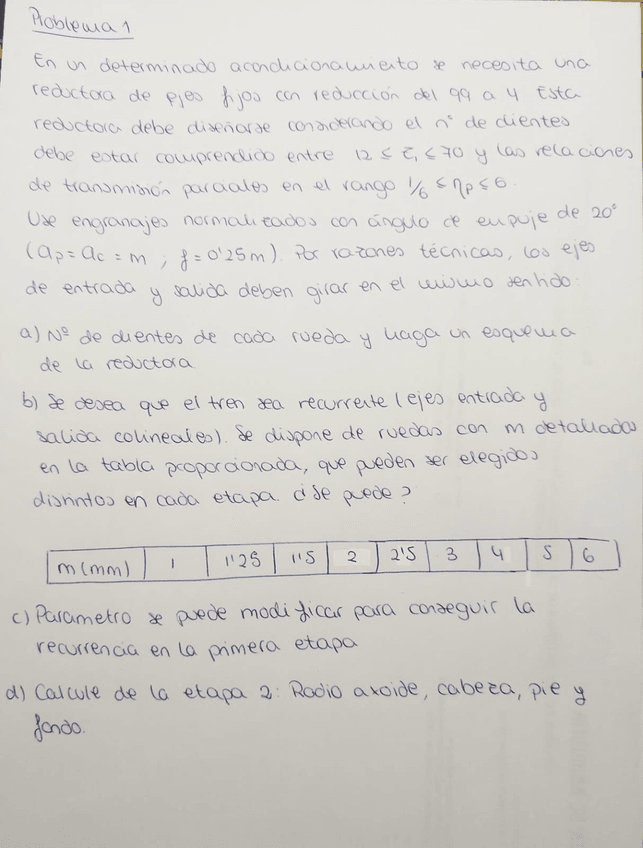 Problema 1
En un determinado acondicionamiento se necesita una
reductora de ejes fijos con reducción del 99 a 4 Esta
reductora debe diseñarse considerando el nº de dientes
debe estar comprendido entre 12 ≤ Zi ≤ 70 y las relaciones
de transmisión parciales en el rango 1/6 ≤ ηp ≤ 6.
Use engranajes normalizados con ángulo de empuje de 20°
(ap = ac = m ; f = 0'25m). Por razones técnicas, los ejes
de entrada y salida deben girar en el mismo sentido:
a) Nº de dientes de cada rueda y haga un esquema
de la reductora
b) Se desea que el tren sea recurrente (ejes entrada y
salida colineales). Se dispone de ruedas con m detallados
en la tabla proporcionada, que pueden ser elegidos
distintos en cada etapa ¿Se puede?
m(mm) 1 1'25 1'5 2 2'5 3 4 5 6
c) Parametro se puede modificar para conseguir la
recurrencia en la primera etapa
d) Calcule de la etapa 2: Radio axoide, cabeza, pie y
fondo.